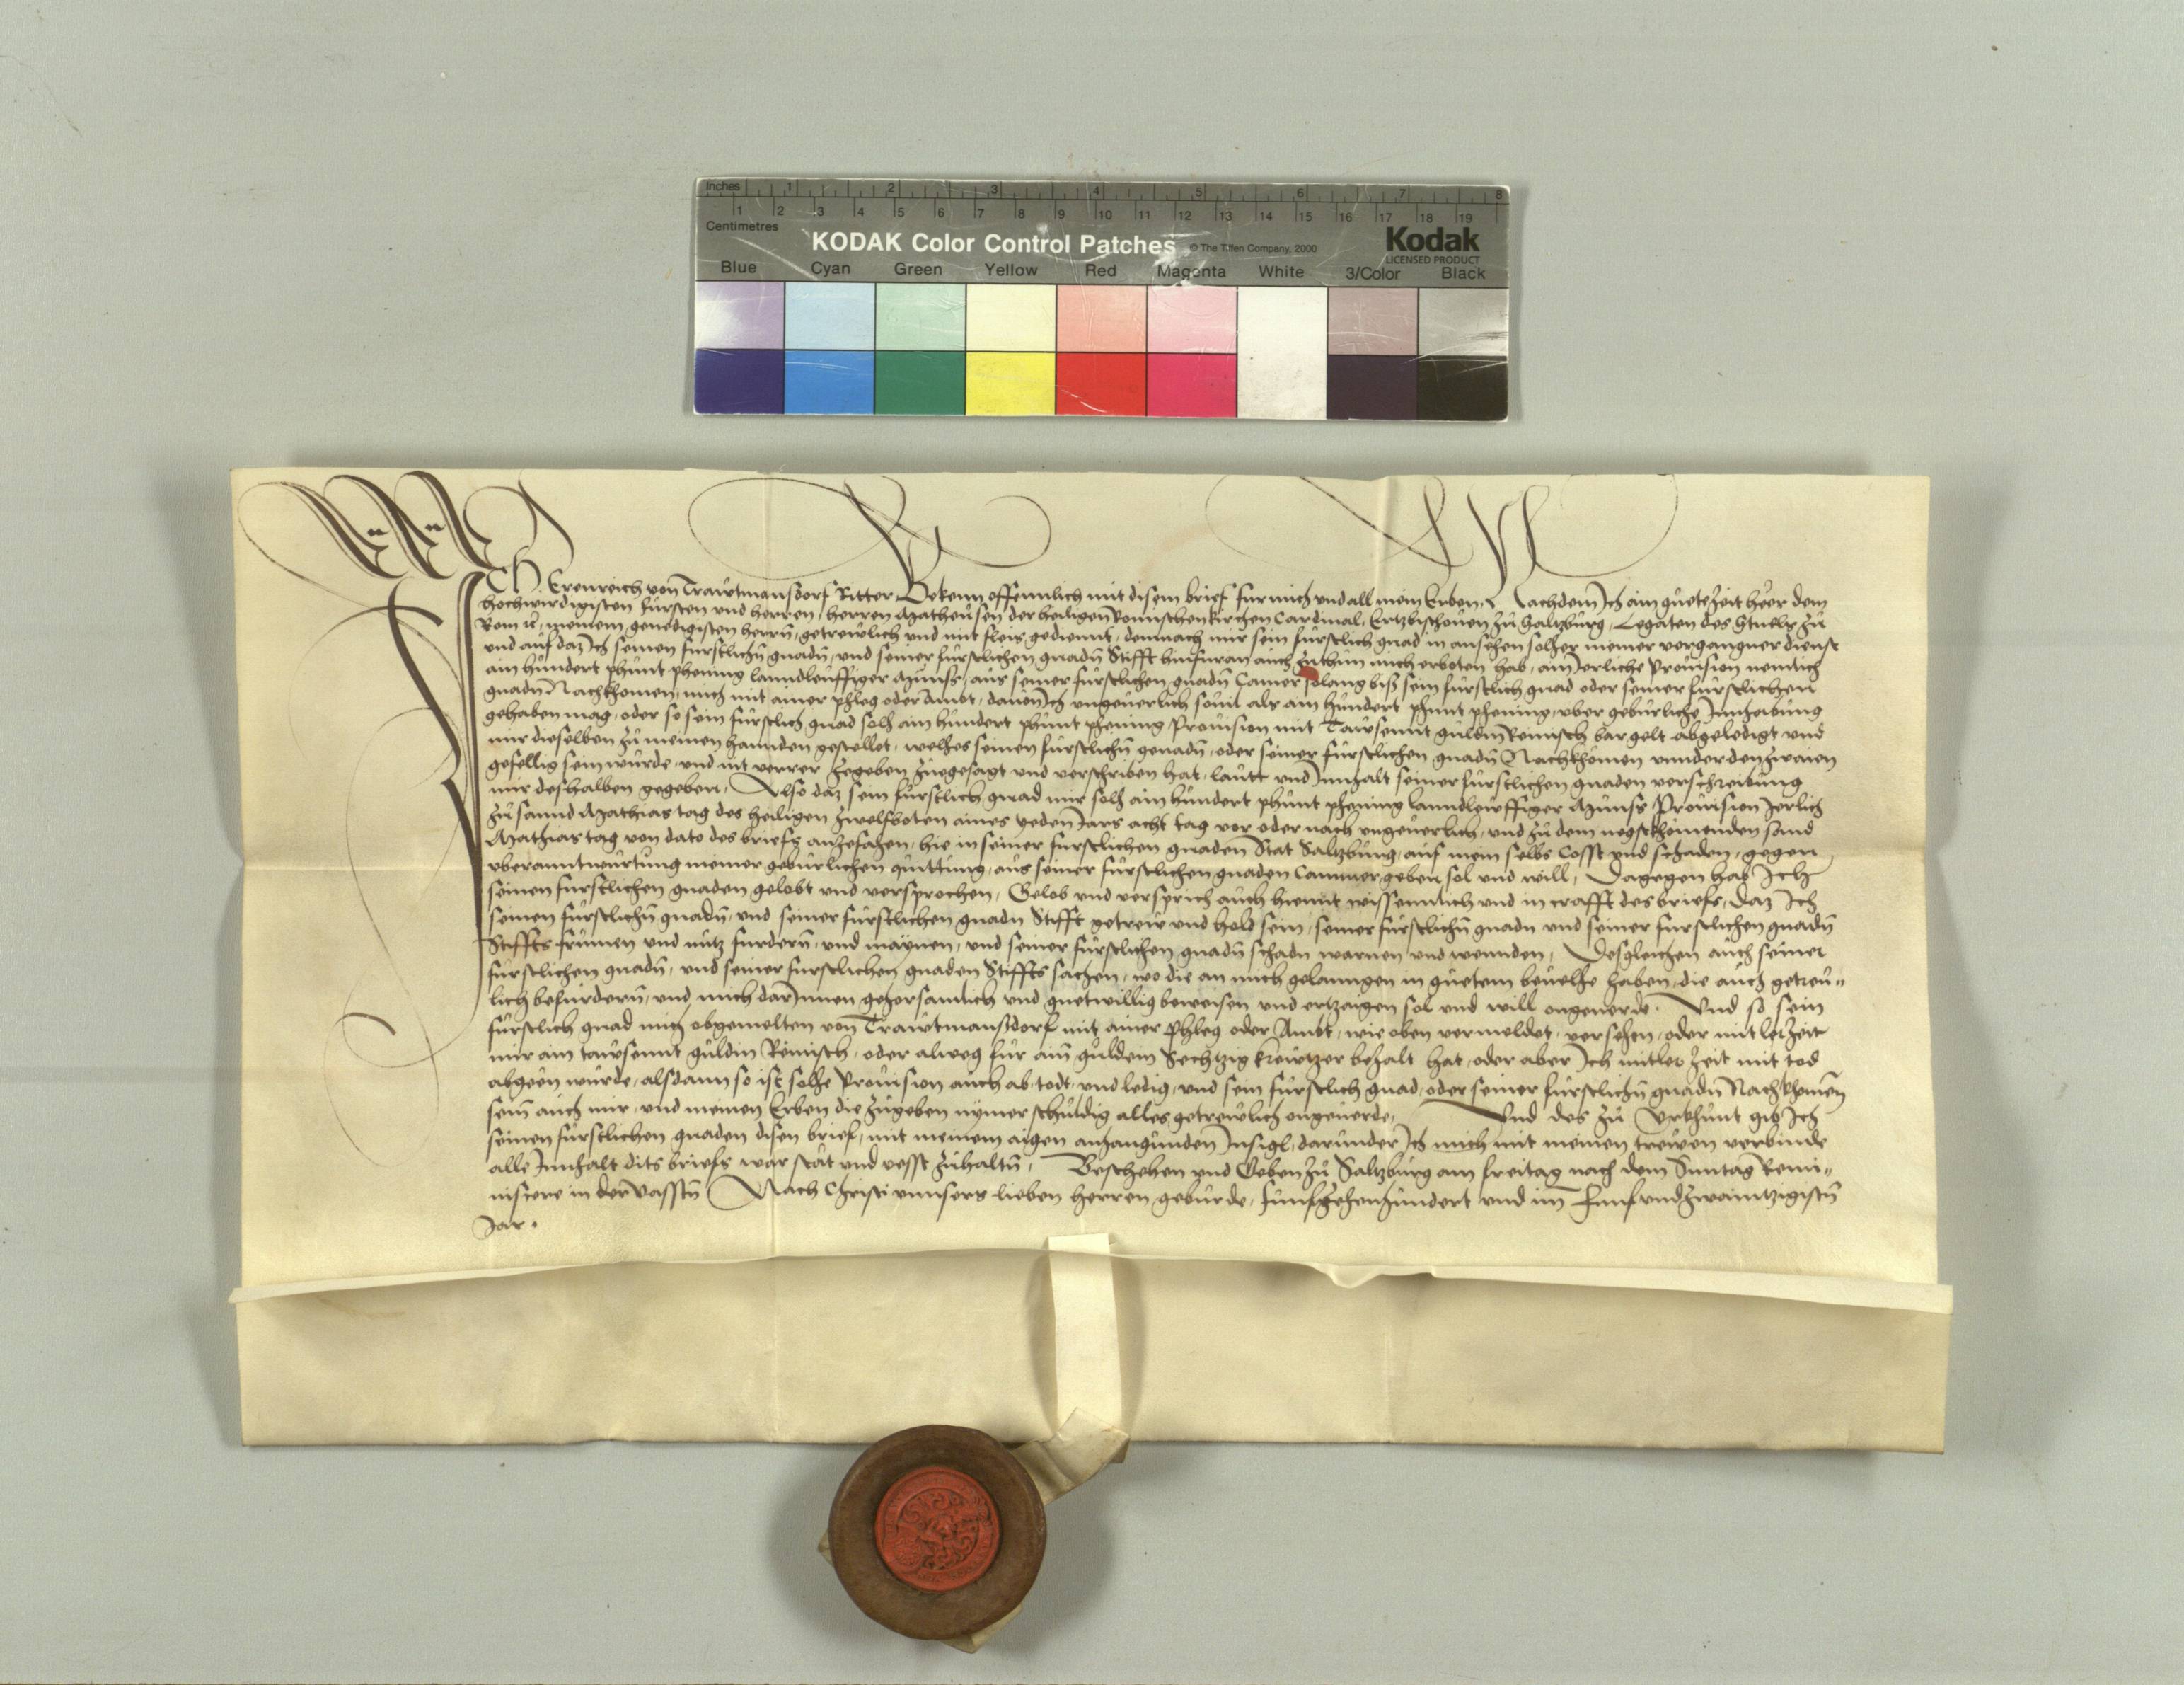 Inches 1 2 3 4 5 6 7 8
1 2 3 4 5 6 7 8 9 10 11 12 13 14 15 16 17 18 19
Centimetres
KODAK Color Control Patches © The Tiffen Company, 2000 Kodak
LICENSED PRODUCT
Blue Cyan Green Yellow Red Magenta White 3/Color Black
Ich Erenreich von Trautmansdorf Ritter Bekenn offennlich mit disem brief fur mich und all mein Erben, Nachdem Ich ain guete Zeit heer dem
hochwirdigisten fürsten und herren, herren Matheusen der heiligen Romischen kirchen Cardinal, Ertzbischouen zu Saltzburg, Legaten des Stuels zu
Rom, meinem genedigisten herrn, getreulich und mit fleis gediennt, demnach mir sein fürstlich gnad in ansehen solher meiner vergangner dienst
und auf daz Ich seinen fürstlichn gnadn, und seiner fürstlichen gnadn Stifft hinfuran auch zuthun mich erboten hab, ain Jerliche Prouision nemlich
ain hundert phunt phening lanndleuffiger Münss, aus seiner fürstlichen gnadn Camer solang biss sein fürstlich gnad oder seiner fürstlichen
gnadn Nachkhomen, mich mit ainer phleg oder Ambt, dauon Ich ungeuerlich souil als ain hundert phunt phening, uber geburliche Innhabung
gehaben mag, oder so sein fürstlich gnad solh ain hundert phunt phening Prouision mit Tausennt guldin Reinisch bar gelt abgeledigt und
mir dieselben zu meinen hannden gestellet, welhes seinen fürstlichn genadn, oder seiner fürstlichen gnadn Nachkhomen unnder den zwaien
gefellig sein wurde, und nit verrer zegeben zuegesagt und verschriben hat, lautt und Innhalt seiner fürstlichen gnaden verschreibung
mir deshalben gegeben, Also daz sein fürstlich gnad mir solh ain hundert phunt phening lanndleuffiger Münss Prouision Jerlich
zu sannd Mathias tag des heiligen zwelfboten aines yeden Jars acht tag vor oder nach ungeuerlich, und zu dem negstkhomenden sand
Mathias tag von dato des briefs anzefahen, hie in seiner fürstlichen gnaden Stat Saltzburg, auf mein selbs Cosst und schaden, gegen
uberanntwurtung meiner geburlichen quittung, aus seiner fürstlichen gnaden Cammer geben sol und will, Dagegen hab Ich
seinen fürstlichen gnaden gelobt und versprochen, Gelob und versprich auch hiemit wissenntlich und in crafft des briefs, Daz Ich
seinen fürstlichn gnadn, und seiner fürstlichen gnadn Stifft getreu und hold sein, seiner fürstlichn gnadn und seiner fürstlichen gnadn
Stiffts frumen und nutz furdern, und maynen, und seiner fürstlichen gnadn schadn warnen und wennden, Desgleichen auch seiner
fürstlichen gnadn, und seiner fürstlichen gnaden Stiffts sachen, wo die an mich gelanngen in guetem beuelhe haben, die auch getreu-
lich befurdern, und mich darInnen gehorsamlich und guetwillig beweisen und ertzaigen sol und will ongeuerde. Und so sein
fürstlich gnad mich obgemelten von Trautmanssdorf mit ainer Phleg oder Ambt, wie oben vermeldet, versehen, oder mitlerzeit
mir ain tausennt guldin Reinisch, oder alweg für ain guldein Sechtzig kreutzer bezalt hat, oder aber Ich mitler zeit mit tod
abgeen wurde, alsdann so ist solhe Prouision auch ab, todt, und ledig, und sein fürstlich gnad, oder seiner fürstlichn gnadn Nachkhomen
sein auch mir, und meinen Erben die zugeben nymer schuldig alles getreulich ongeuerde, Und des zu Urkhunt gib Ich
seinen fürstlichen gnaden disen brief, mit meinem aigen anhangunden Insigl, darunder Ich mich mit meinen treuen verbinde
alle Innhalt dits briefs war stat und vesst zuhaltn, Beschehen und Geben zu Saltzburg am freitag nach dem Suntag Remi-
niscere in der Vasstn Nach Christi unnsers lieben herren geburde, funfzehenhundert und im Funfundzwaintzigistn
Jar.